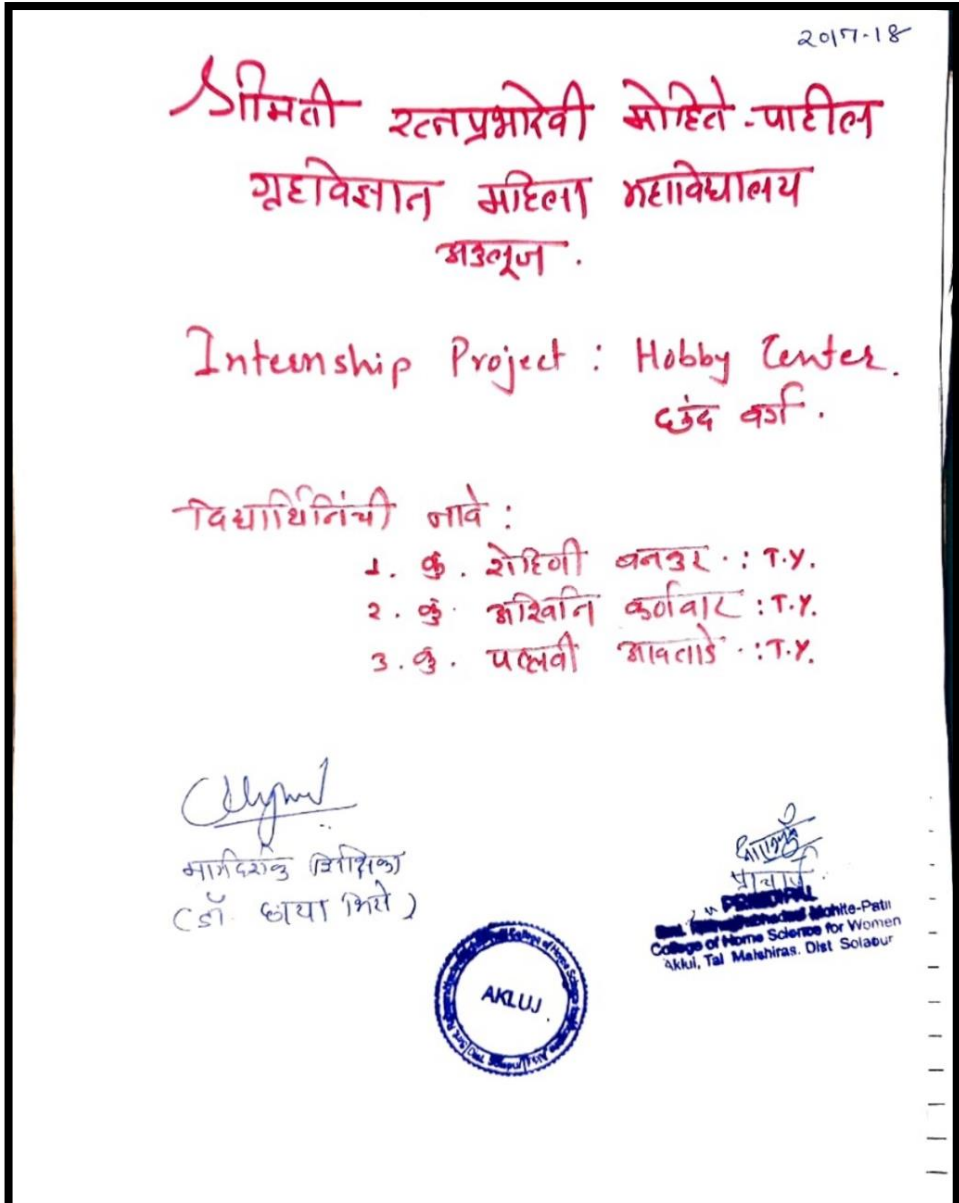 2017-18
श्रीमती रत्नप्रभादेवी मोहिते-पाटील
गृहविज्ञान महिला महाविद्यालय
अकलूज.
Internship Project : Hobby Center.
छंद वर्ग.
विद्यार्थिनिंची नावे :
1. कु. रोहिणी बनकर .: T.Y.
2. कु. अश्विनि कर्णवार : T.Y.
3. कु. पल्लवी आवताडे .: T.Y.
मार्गदर्शक शिक्षिका
(डॉ. छाया भिसे)
प्राचार्य
PRINCIPAL
Mohite-Patil
College of Home Science for Women
Akluj, Tal Malshiras. Dist Solapur
AKLUJ
College of Home Science